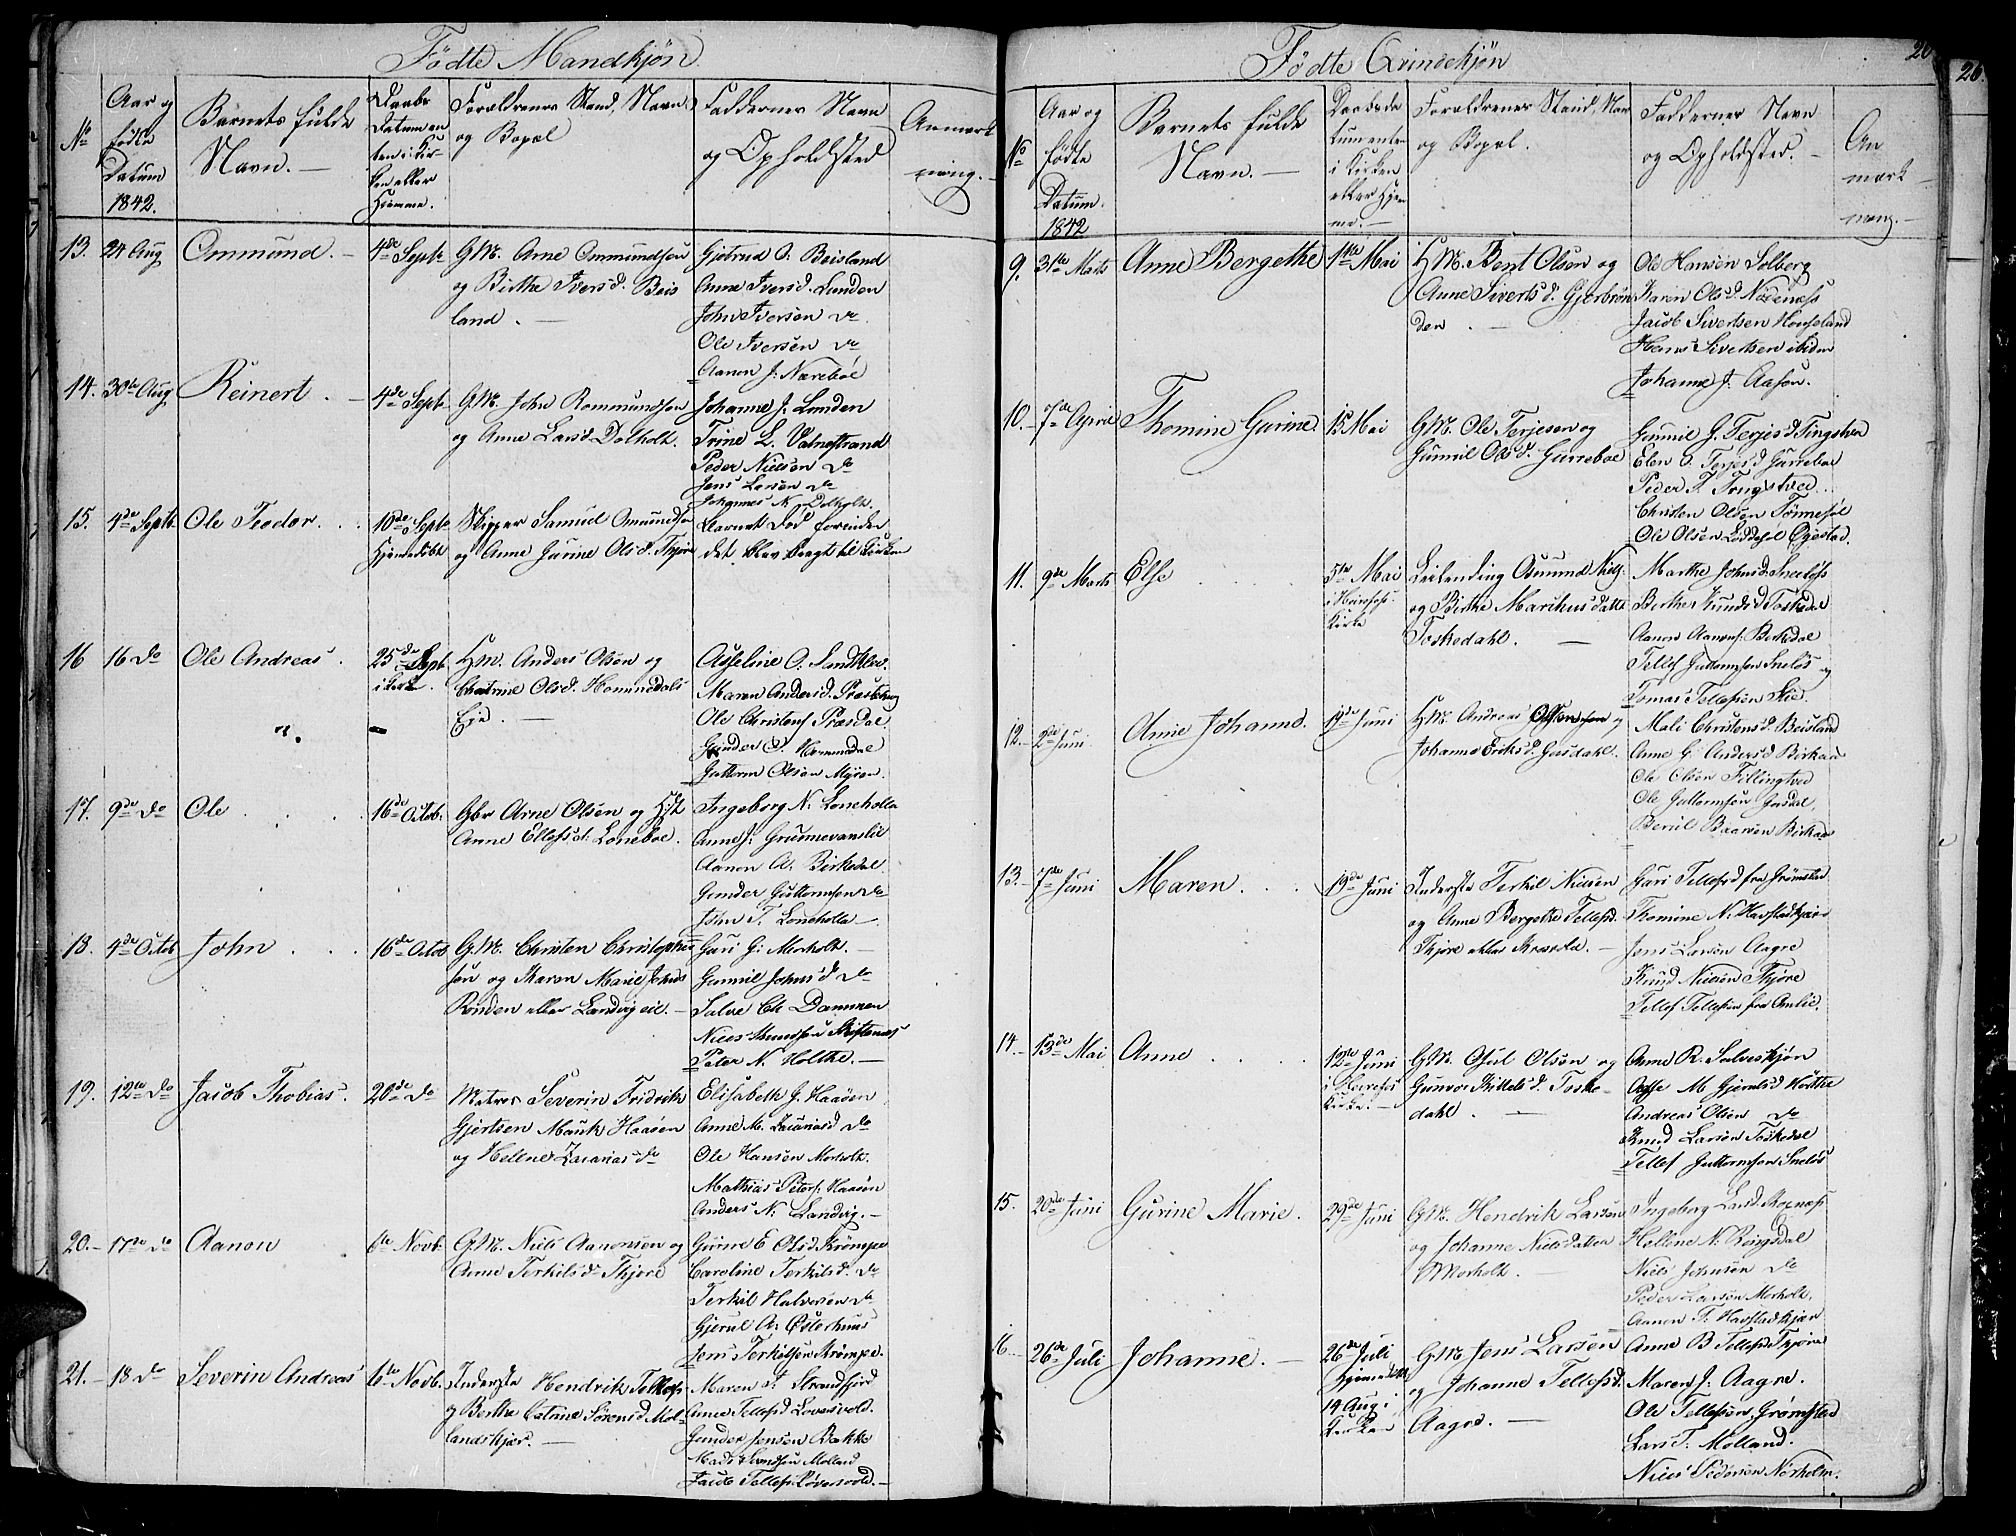 Fødte Mandkjøn
No
Aar og
fødte
Datum
1842.
Barnets fulde
Navn. —
Daabs
Datum en
ten i Kir-
ken eller
Hjemme.
Forældrenes Stand, Navn,
og Bopæl
Faddernes Navn
og Opholdsted
Anmærk
ning. —
13. 24 Aug
Ommund. —
4de Septr
GM. Arne Ommundsen
og Birthe Iversd. Beis
land. —
Gjetrud O. Beisland
Anne Iversd. Lunden
John Iversen do
Ole Iversen do
Aanon J. Nærebøe
14. 30te Aug
Reinert. —
4de Sept.
GM. John Rommundsen
og Anne Larsd. Dolholt.
Johanne J. Lunden
Trine L. Vatnestrand
Peder Nielsen do
Jens Larsen do
Johannes N. Dolholt.
15. 4de Septr
Ole Teodor. . .
10de Septr
Hjemedøbt
Skipper Samuel Omundsen
og Anne Gurine Olsd. Thjøre
Barnet død forinden
det blev bragt til Kirken
16 16 do
Ole Andreas.
25de Sept.
i Kirke.
HM. Anders Olsen og
Chatrine Olsd. Hommedals
Eje. —
Asseline O. Sandklev.
Maren Andersd.
Ole Christens.
Gunder O. Hommedal
Guttorm Olsen Myren.
17. 9de do
Ole . . . .
16de Octob.
Gbr Arne Olsen og Hst
Anne Ellefsd. Loneboe.
Ingeborg N. Loneholla
Anne J. Grunnevanslie
Aanon A. Birkedal
Gunder Guttormsen do
John T. Loneholla —
18. 4de Octob
John . . .
16de Octob
GM. Christen Christophers
sen og Karen Marie Johnsd
Ronden eller Landvig eie. —
Guri G. Morholt. —
Gunnil Johnsd do
Salve Chr Dammen
Niels Knudsen
Peter N. Holthe. —
19. 12te do
Jacob Thobias.
20de do
Matros Severin Fridrik
Gjertsen Mauk Haaøen
og Hellene Zacarias do
Elisabeth G. Haaöen
Anne M. Zacariasd do
Ole Hansen Morholt.
Mathias Peters. Haaøen
Anders N. Landvig. —
20. — 17de do
Aanon
6te Novb.
GM. Niels Aanonsen og
Anne Terkilsd. Thjøre
Gurine E Olsd. Strømpe
Caroline Terkilsd. do
Terkil Halvorsen do
Gjerul A. Østerhuus
Jens Terkelsen Strømpe.
21. — 18 do
Severin Andreas
6te Novb.
Inderste Hendrik Tellefs.
og Berthe Catrine Sørensd. Mol-
landskjær. —
Maren J. Strandfjord
Anne Tellefsd. Løversvold.
Gunder Jensen Bakke
Mads Svendsen Molland
Jacob Tellefs. Løversvold. —
Fødte Qvindekjøn
26
26
No
Aar og
fødte
Datum.
1842
Barnets fulde
Navn. —
Daabsda
tum enten
i Kirken
eller Hjem
me. —
Forældrenes Stand, Navn
og Bopæl.
Faddernes Navn
og Opholdsted. —
An
mærk —
ning. —
9. 31te Marts
Anne Bergethe
1ste Mai
HM. Bent Olsen og
Anne Sivertsd. Gjerbrøn
den. —
Ole Hansen Solberg
Karen Olsd. Nødenæss
Jacob Sivertsen Homfeland
Hans Sivertsen ibidem
Johanne J. Aasen.
10. — 7de April
Thomine Gurine
15 Mai
GM. Ole Terjesen og
Gunnil Olsd. Gurrebøe
Gunnil G. Terjesd Tingstved
Elen O. Terjesd Gurrebøe
Peder T. Tingstved
Christen Olsen Tørnesøl
Ole Olsen Løddesøl Øgestad.
11. 9de Marts
Else . . . .
5te Mai
i Heirefoss
Kirke
Leilending Osmund Niels.
og Birthe Marthusdatter
Toskedahl. —
Marthe Johnsd. Sneløss
Berthe Knudsd Toskedal
Aanon Aanons. Birkedal
Tellef Guttormsen Sneløs og
Tomas Tellefsen Skie.
12. — 2den Juni
Anne Johanne.
19de Juni
HM. Andreas og
Johanne Eriksd. Gusdahl.
Mali Christensd. Beisland
Anne G. Andersd Birkeaas
Ole Olsen Fillingtved
Ole Guttormsen Gusdal,
Berul Baarsen Birkaas
13. — 7de Juni
Maren. . .
19de Juni
Inderste Terkil Nielsen
og Anne Bergethe Tellefsd.
Thjøre eller —
Guri Tellefsd fra Grømstad
Thomine N. Havstadkjær
Jens Larsen Aagre
Knud Nielsen Thjøre
Tellef Tellefsen fra Omlie.
14. — 13de Mai
Anne . . . .
12te Juni
i
Kirke. —
GM. Gjul Olsen og
Gunvor Kittelsd. Toske-
dahl. —
Anne R. Salveskjøn
Aasse M. Gjerulsd Holthe
Andreas Olsen do
Knud Larsen Toskedal
Tellef Guttormsen Sneløs
15. 20de Juni
Gurine Marie.
29de Juni
GM. Hendrik Larsen
og Johanne Nielsdatter
Morholt. —
Ingeborg Larsd. Roxnæss
Hellene N. Ringsdal
Niels Johnsen do
Peder Larsen Morholt.
Aanon T. Havstadkjær
16. — 26de Juli
Johanne. —
26de Juli
hjemmedøbt
14 Aug i
Kirken
GM. Jens Larsen
og Johanne Tellefsd.
Aagre. —
Anne B Tellefsd. Thjøre
Maren J. Aagre.
Ole Tellefsen, Grømstad
Lars T. Molland.
Niels Pedersen Nørholm.